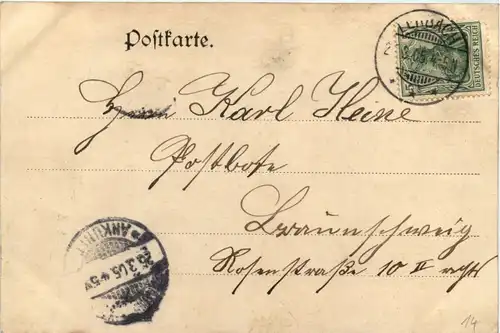 Postkarte.
DEUTSCHES REICH
Herrn Karl Heine
Postbote
Braunschweig
Rosenstraße 10 II rechts
ANKUNFT
14